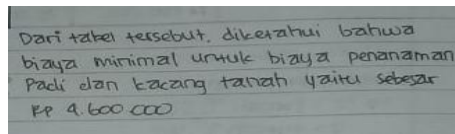 Dari tabel tersebut, diketahui bahwa
biaya minimal untuk biaya penanaman
Padi dan kacang tanah yaitu sebesar
Rp 4.600.000